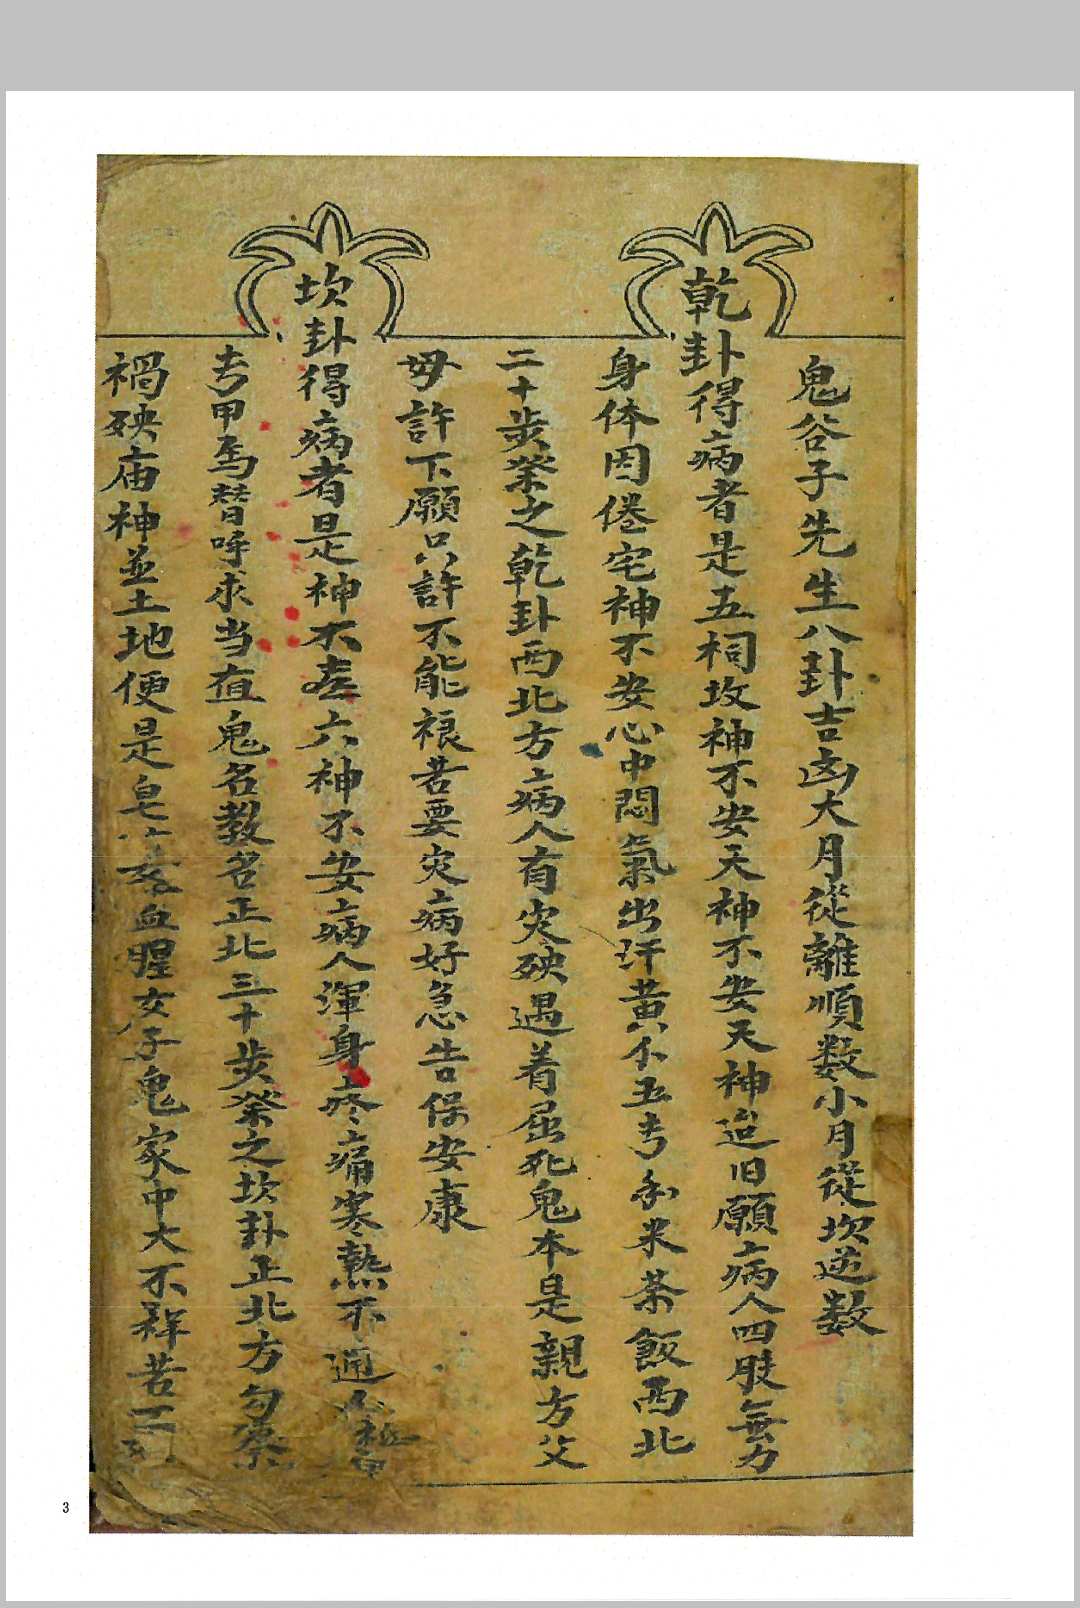 鬼谷子先生八卦吉凶大月從離順数小月從坎逆数
乾卦得病者是五祠坟神不安天神不安天神迨旧願病人四肢無力
身体困倦宅神不安心中悶氣出汗黄个五夸米茶飯西北
二十步祭之乾卦西北方上病人有灾殃遇着屈死鬼本是親方父
母許下願只許不能禳若要灾病好急告保安康
坎卦得病者是神不喜六神不安病人渾身疼痛寒熱不通
夸甲馬替呼求当值鬼名教名正北三十步祭之坎卦正北方勾
禍殃庙神並土地便是血腥女子鬼家中大不祥若
3